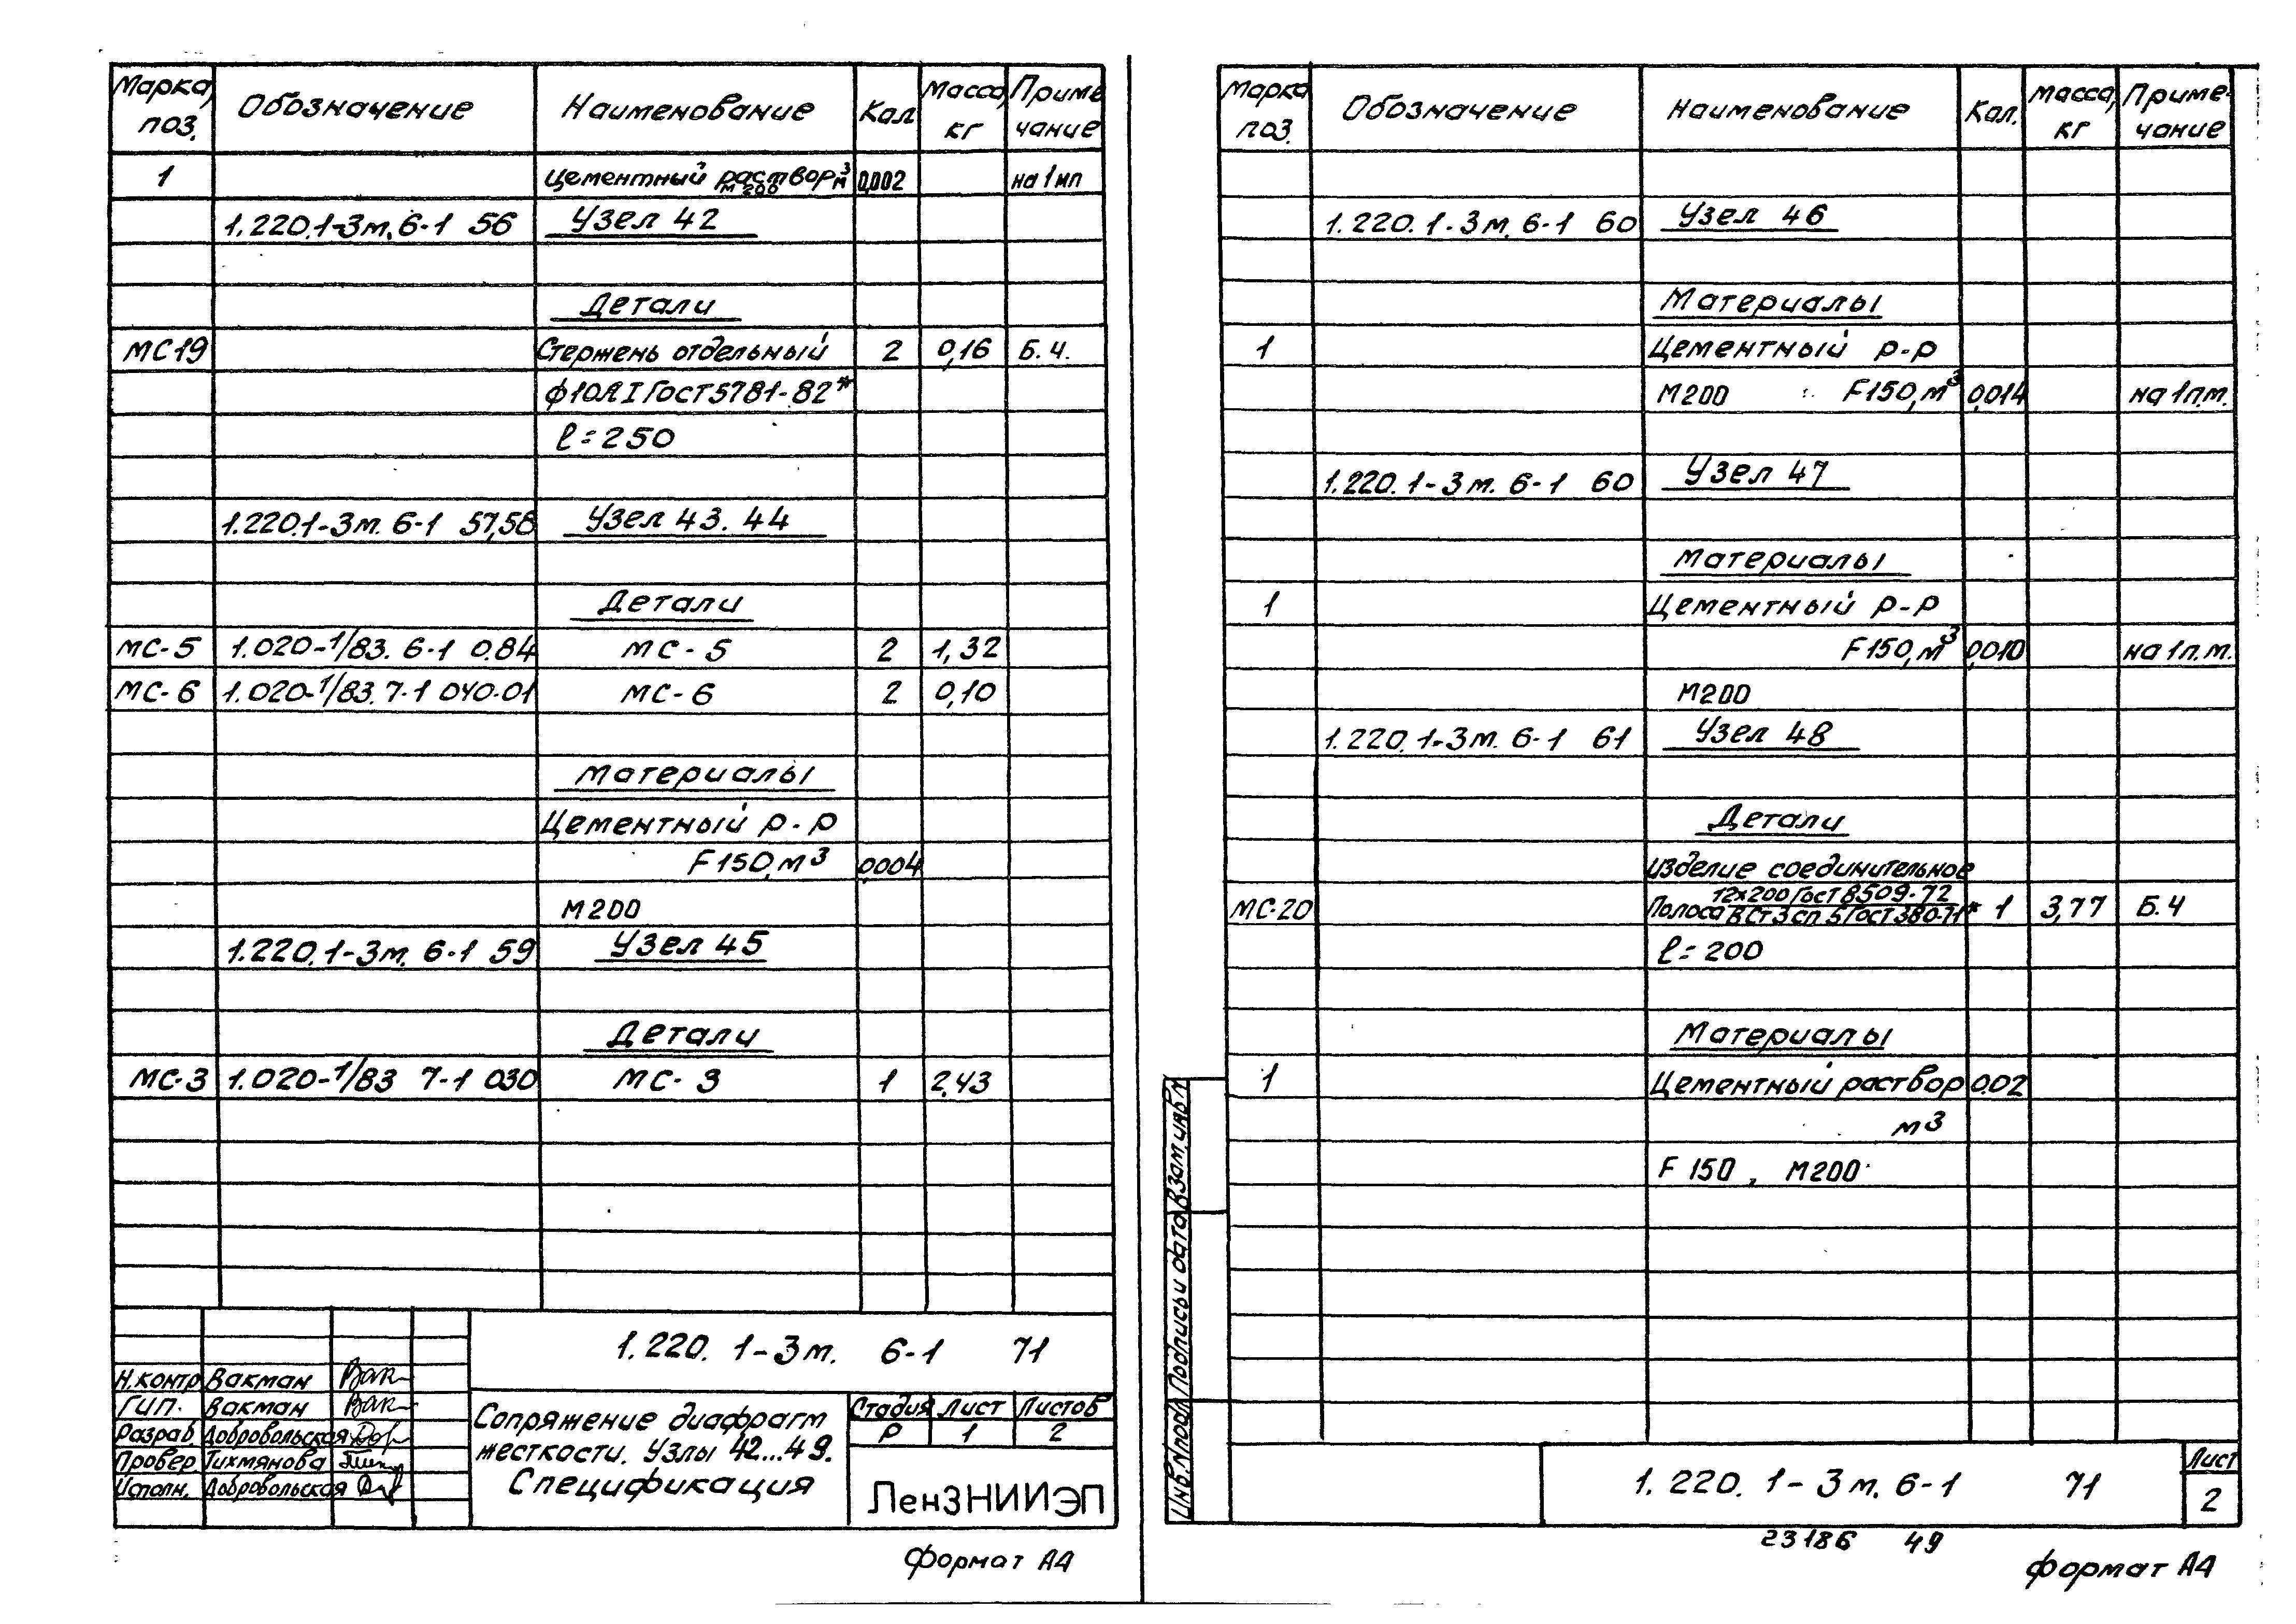 Марка, поз. Обозначение Наименование Кол. Масса, кг Приме чание
1 Цементный раствор м³ 0,002 на 1мп
М 200
1.220.1-3м. 6-1 56 Узел 42
Детали
МС19 Стержень отдельный 2 0,16 Б.ч.
ф10АI ГОСТ 5781-82*
ℓ=250
1.220.1-3м. 6-1 57,58 Узел 43. 44
Детали
МС-5 1.020-1/83. 6-1 0.84 МС-5 2 1,32
МС-6 1.020-1/83. 7-1 040-01 МС-6 2 0,10
Материалы
Цементный р-р
F150, м³ 0,004
М200
1.220.1-3м. 6-1 59 Узел 45
Детали
МС-3 1.020-1/83 7-1 030 МС-3 1 2,43
1.220. 1-3м. 6-1 71
Н.контр Вакман
ГИП. Вакман
Разраб. Добровольская
Провер. Тихмянова
Исполн. Добровольская
Сопряжение диафрагм
жесткости. Узлы 42...49.
Спецификация
Стадия Лист Листов
Р 1 2
ЛенЗНИИЭП
Формат А4
Марка поз. Обозначение Наименование Кол. Масса, кг Приме-чание
1.220. 1-3м. 6-1 60 Узел 46
Материалы
1 Цементный р-р
М200 F150, м³ 0,014 на 1п.м.
1.220. 1-3м. 6-1 60 Узел 47
Материалы
1 Цементный р-р
F150, м³ 0,010 на 1п.м.
М200
1.220. 1-3м. 6-1 61 Узел 48
Детали
Изделие соединительное
МС-20 Полоса 12х200 ГОСТ 8509-72 / ВСт3сп5 ГОСТ 380-71* 1 3,77 Б.ч
ℓ=200
Материалы
1 Цементный раствор 0.02
м3
F 150, М200
Инв.№подл. Подпись и дата Взам.инв.№
1. 220. 1-3м. 6-1 71
Лист
2
23186 49
Формат А4